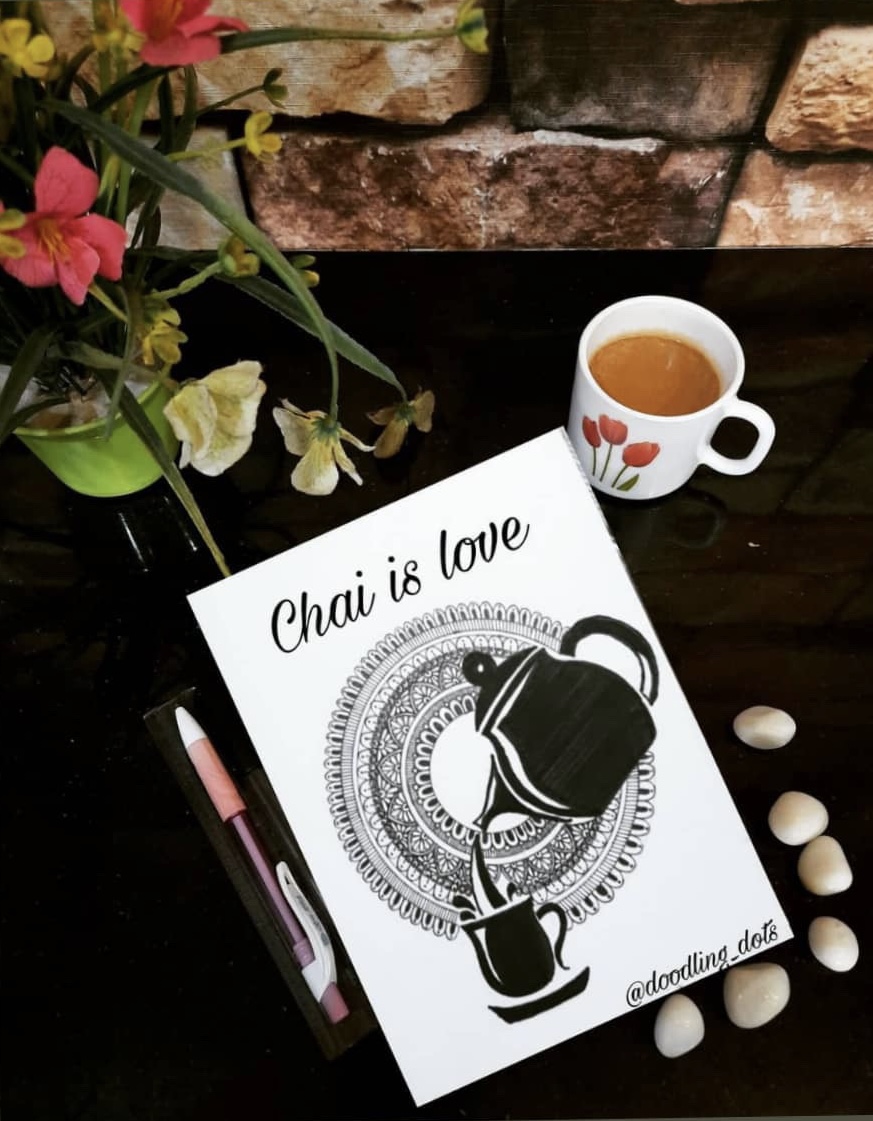 Chai is love
@doodling_dots